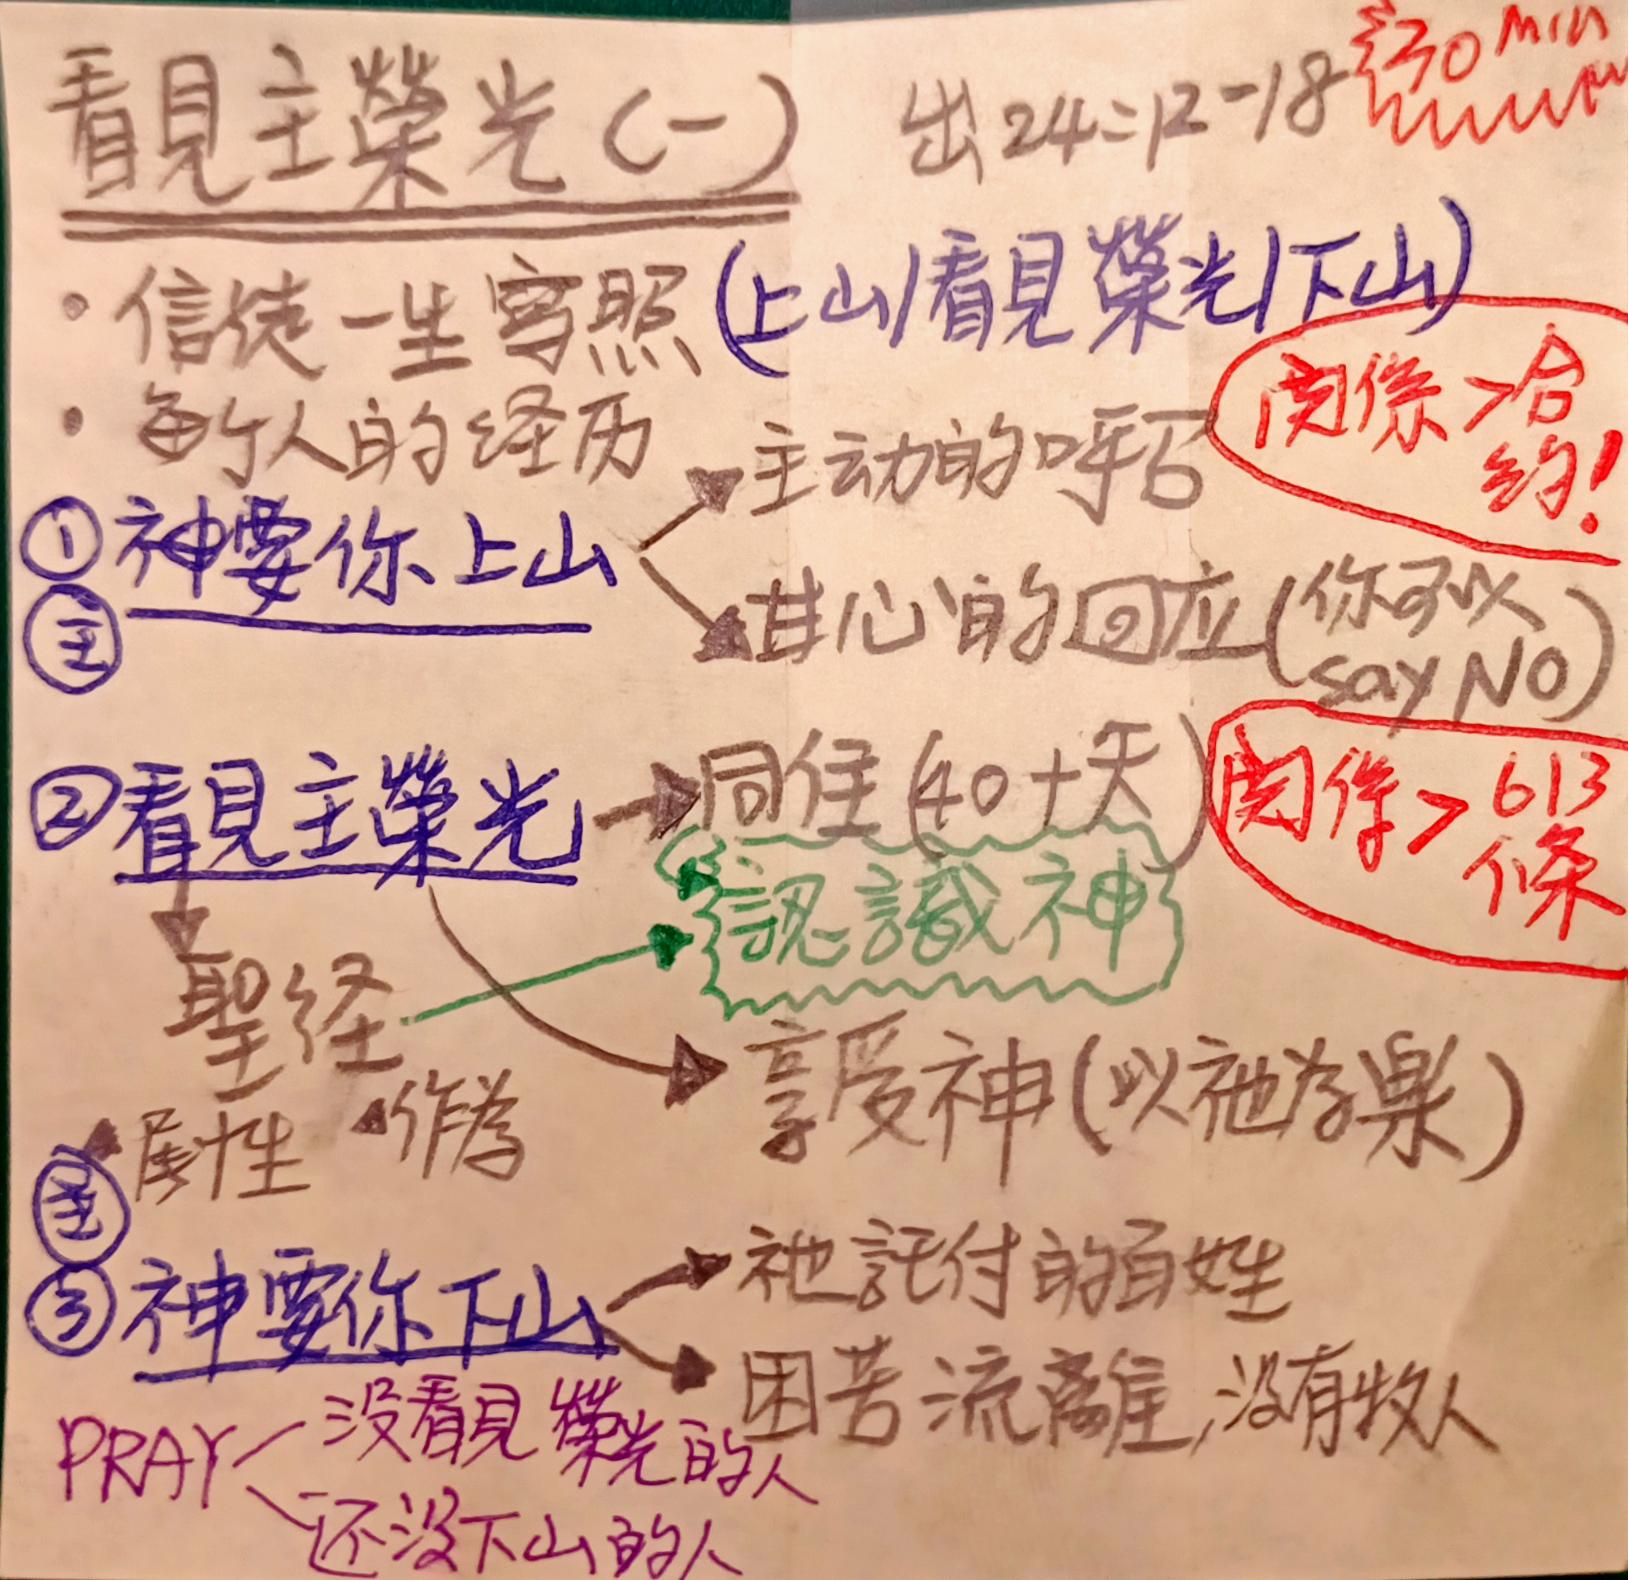 看見主榮光(一) 出24:12-18 30 Min
·信徒一生寫照(上山/看見榮光/下山)
·每个人的经历
関係>合约!
①神要你上山
主动的呼召
甘心的回应(你可以say NO)
主
②看見主榮光
同住(40十天)
関係>613條
認識神
聖经
享受神(以祂为樂)
属性 作为
主
③神要你下山
祂託付的百姓
困苦流離,没有牧人
PRAY
没看見榮光的人
还没下山的人